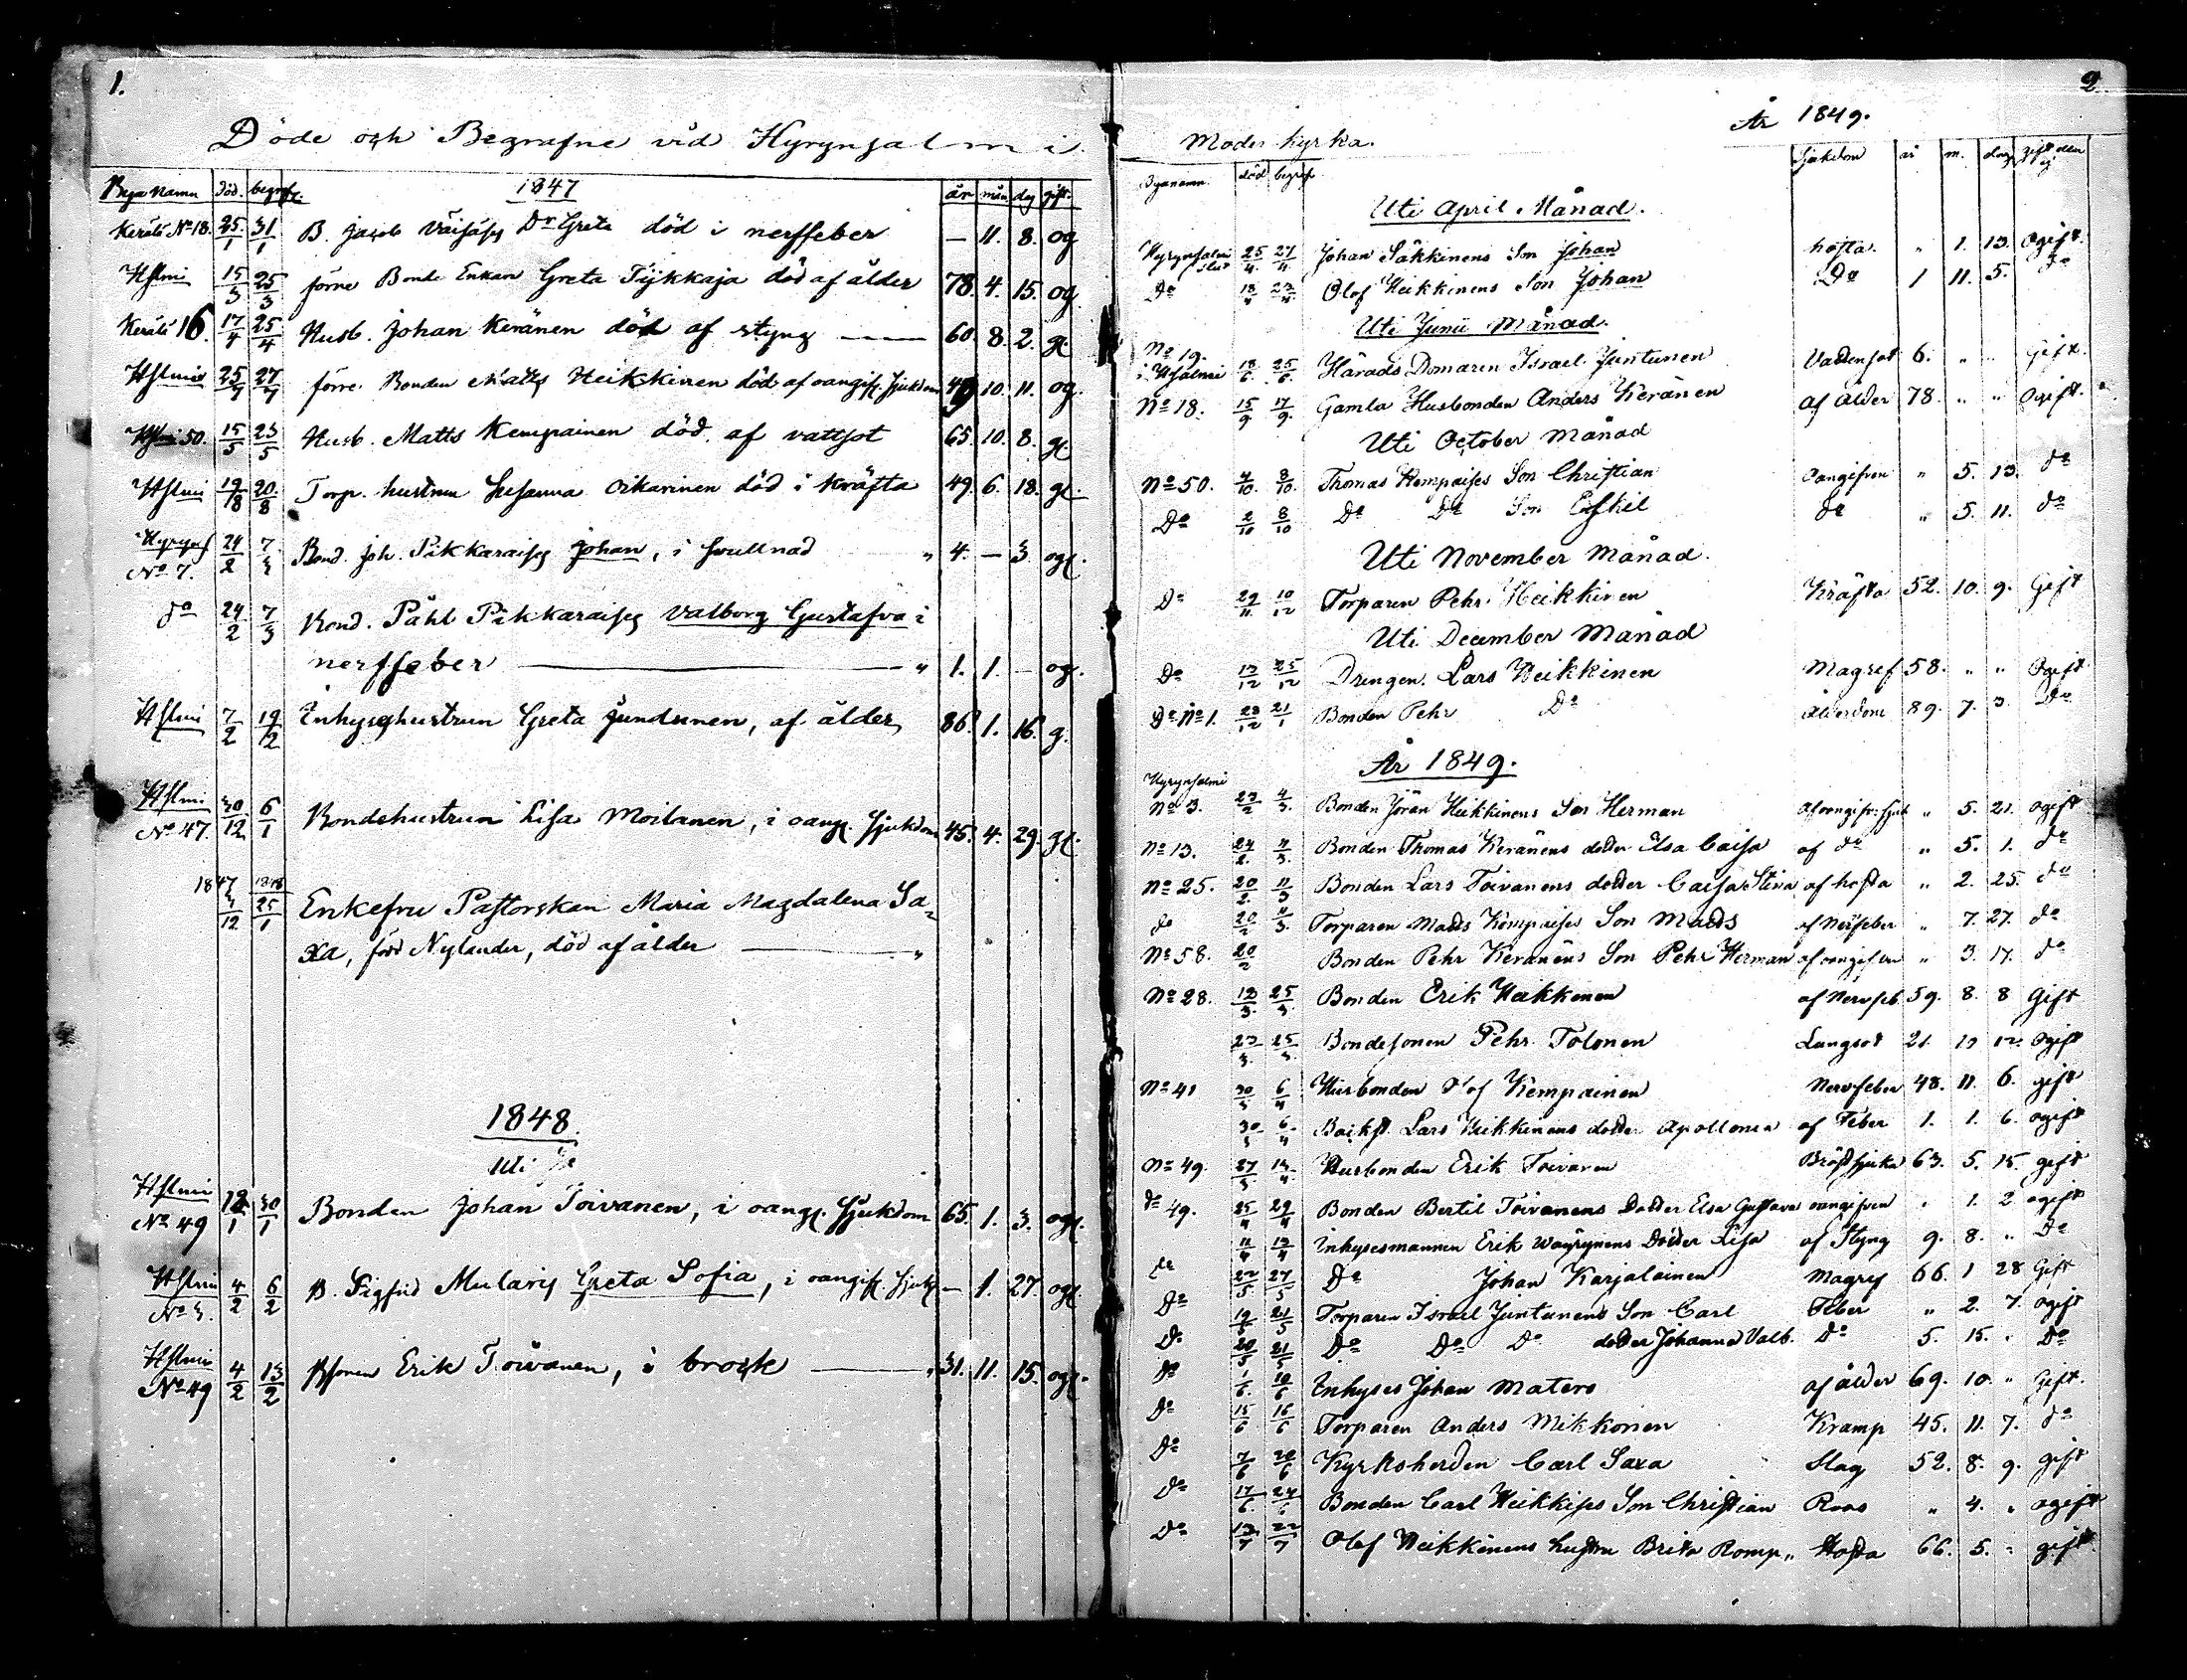 1.
Döde och Begrafne vid Hyrynsalmi
Bya Namn död. begrafn. 1847 år mån dag gift.
Kerälä No 18. 25/1 31/1 B. Jacob Väisäs Dr Greta död i nerffeber — 11. 8. og
Hslmi 15/3 25/3 förre Bonde Enkan Greta Tykkaja död af ålder 78. 4. 15. og
Kerälä 16. 17/4 25/4 Husb. Johan Keränen död af styng 60. 8. 2. gf.
Hslmi 25/4 27/4 förre Bonden Matts Heikkinen död af oangif. Sjukdom 49 10. 11. og.
Hslmi 50. 15/5 23/5 Husb. Matts Kempainen död af vattsot 65. 10. 8. gf.
Hslmi 19/8 20/8 Torp. hustrun Susanna Oikarinen död i kräfta 49. 6. 18. gf.
Hyryns
No 7. 24/2 7/3 Bond. Joh. Pikkaraises Johan, i svullnad " 4. — 3. ogf.
do 24/2 7/3 Bond. Påhl Pikkaraises Valborg Gustafva i
nerffeber " 1. 1. — og.
Hslmi 7/2 19/12 Inhyseshustrun Greta Jundunen, af ålder 86. 1. 16. g.
Hslmi
No 47. 30/12 6/1 Bondehustrun Lisa Moilanen, i oangf. Sjukdom 45. 4. 29. gf.
1847 1848
3/12 25/1 Enkefru Pastorskan Maria Magdalena Sa-
xa, född Nylander, död af ålder "
1848.
Uti
Hslmi
No 49 12/1 30/1 Bonden Johan Toivanen, i oangf. Sjukdom 65. 1. 3. ogf.
Hslmi
No 3. 4/2 6/2 B. Sigfrid Mularis Greta Sofia, i oangif. — 1. 27. ogf.
Hslmi
No 49 4/2 13/2 Bsonen Erik Toivanen, i brock 31. 11. 15. ogf.
2.
Moder kyrka. År 1849.
Byanamn. död begrafn Sjukdom år m. dag gift
Uti April Månad.
Hyrynsalmi 25/4 27/4 Johan Säkkinens Son Johan hosta. " 1. 13. Ogift.
Do 18/4 Olof Heikkinens Son Johan Do 1 11. 5. do
Uti Junii Månad.
No 19.
i Hsalmi 18/6. 25/6. Härads Domaren Israel Juntunen Vattensot 6. " " Gift.
No 18. 15/9 17/9. Gamla Husbonden Anders Keränen af ålder 78. " " Ogift.
Uti October Månad
No 50. 4/10. 8/10. Thomas Kempaises Son Christian Oangifven " 5. 13. do
Do 2/10 8/10 Do Do Son Eskil do " 5. 11. do
Uti November Månad.
Do 29/11. 10/12 Torparen Pehr Heikkinen Kräfta 52. 10. 9. Gift
Uti December Månad
Do 13/12 25/12 Drengen Lars Heikkinen Magref 58. " " Ogift
Do No 1. 23/12 21/1 Bonden Pehr Do Ålderdom 89. 7. 3. Do
År 1849.
Hyrynsalmi
No 3. 23/2 4/3. Bonden Jöran Heikkinens Son Herman Af oangifv. Sjuk " 5. 21. ogift
No 13. 24/2. 4/3. Bonden Thomas Keränens dotter Elsa Caisa af do " 5. 1. do
No 25. 20/2. 11/3 Bonden Lars Toivanens dotter Caisa Stina af hosta " 2. 25. do
do 20/2 11/3. Torparen Matts Kempaises Son Matts af Nerfeber " 7. 27. do
No 58. 20/2 Bonden Pehr Keränens Son Pehr Herman af oangifven " 3. 17. do
No 28. 13/3. 25/3. Bonden Erik Heikkinen af Nervfeb. 59. 8. 8 Gift
23/3. 25/3 Bondesonen Pehr Tolonen Lungsot 21. 10 12. Ogift
No 41 30/3 6/4 Husbonden Olof Kempainen Nervfeber 48. 11. 6. gift
30/3 6/4 Lars Heikkinens dotter Apollonia af Feber 1. 1. 6. ogift
No 49. 27/3 Husbonden Erik Toivanen Bröstsjuka 63. 5. 15. gift
do 49. 25/4 29/4 Bonden Bertil Toivanens Dotter Elsa Gustava oangifven " 1. 2 ogift
11/4 13/4 Inhysesmannen Erik Wäyrynens Dotter Lisa af Styng 9. 8. " Do
do 22/5 27/5 Do Johan Karjalainen Magref 66. 1 28 Gift
Do 19/5 21/5 Torparen Israel Juntunens Son Carl Feber " 2. 7. ogift
Do 20/5 21/5 Do Do Do dotter Johanna Valb. Do 5. 15. " Do
do 1/6. 10/6 Inhyses Johan Matero af ålder 69. 10. " Gift.
Do 15/6 16/6 Torparen Anders Mikkonen Kramp 45. 11. 7. do
Do 7/6 20/6 Kyrkoherden Carl Saxa Slag 52. 8. 9. gift
Do 17/6. 24/6 Bonden Carl Heikkises Son Christian Roos " 4. " ogift
Do 13/7 22/7 Olof Heikkinens hustru Brita Romp" Hosta 66. 5. " gift